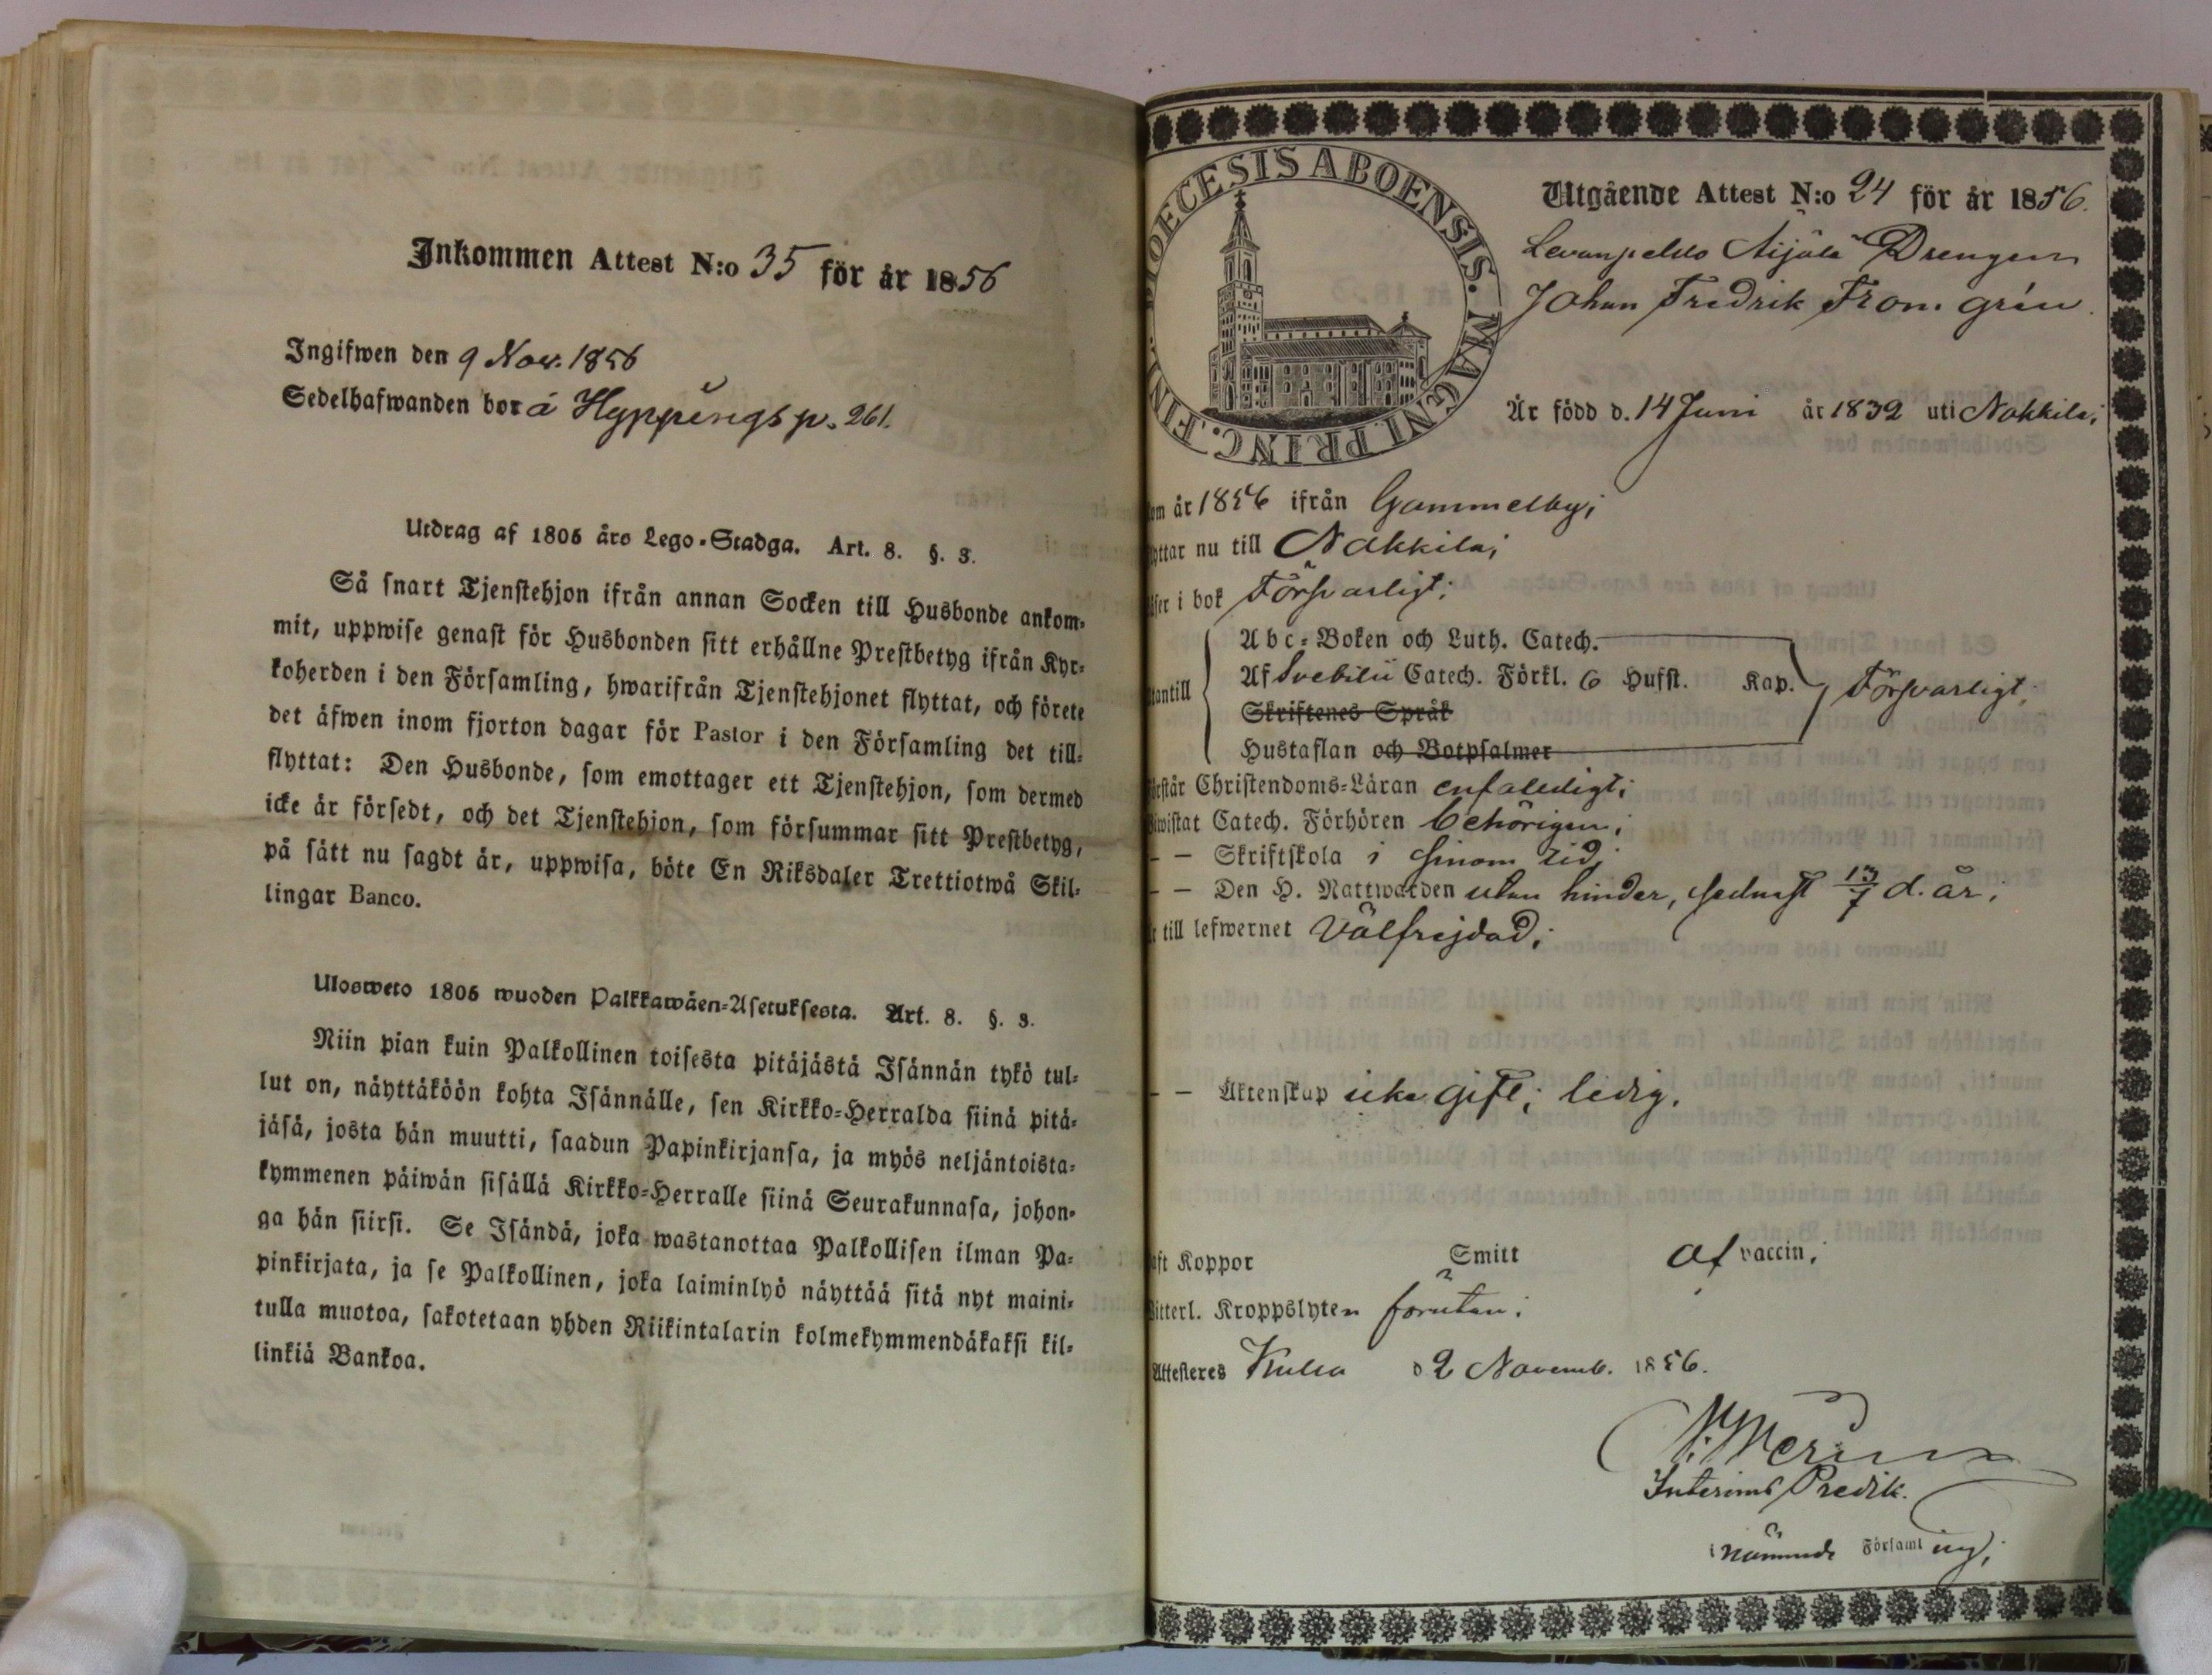 Inkommen Attest N:o 35 för år 1856
Ingifwen den 9 Nov. 1856
Sedelhafwanden bor á Hyppings p. 261.
Utdrag af 1805 års Lego-Stadga. Art. 8. §. 3.
Så snart Tjenstehjon ifrån annan Socken till Husbonde ankom-
mit, uppwise genast för Husbonden sitt erhållne Prestbetyg ifrån Kyr-
koherden i den Församling, hwarifrån Tjenstehjonet flyttat, och förete
det äfwen inom fjorton dagar för Pastor i den Församling det till-
flyttat: Den Husbonde, som emottager ett Tjenstehjon, som dermed
icke är försedt, och det Tjenstehjon, som försummar sitt Prestbetyg,
på sätt nu sagdt är, uppwisa, böte En Riksdaler Trettiotwå Skil-
lingar Banco.
Ulosweto 1805 wuoden Palkkawäen-Asetuksesta. Art. 8. §. 3.
Niin pian kuin Palkollinen toisesta pitäjästä Isännän tykö tul-
lut on, näyttäköön kohta Isännälle, sen Kirkko-Herralda siinä pitä-
jäsä, josta hän muutti, saadun Papinkirjansa, ja myös neljäntoista-
kymmenen päiwän sisällä Kirkko-Herralle siinä Seurakunnasa, johon-
ga hän siirsi. Se Isändä, joka wastanottaa Palkollisen ilman Pa-
pinkirjata, ja se Palkollinen, joka laiminlyö näyttää sitä nyt maini-
tulla muotoa, sakotetaan yhden Riikintalarin kolmekymmendäkaksi kil-
linkiä Bankoa.
DIOECESIS ABOENSIS. MAGNI PRINC. FINL.
Utgående Attest N:o 24 för år 1856.
Levanpelto Äijälä Drengen
Johan Fredrik Fromgrén.
Är född d. 14 Juni år 1832 uti Nakkila;
om år 1856 ifrån Gammelby;
yttar nu till Nakkila;
äser i bok Försvarligt;
utantill
Abc-Boken och Luth. Catech.
Af Svebilii Catech. Förkl. 6 Hufst. Kap. Försvarligt;
Skriftenes Språk
Hustaflan och Botpsalmer
örstår Christendoms-Läran enfaldigt;
iwistat Catech. Förhören behörigen;
– – Skriftskola i sinom tid;
– – Den H. Nattwarden utan hinder, sednast 13/7 d. år;
r till lefwernet Välfrejdad;
– – Äktenskap icke gift; ledig.
aft Koppor Smitt af vaccin;
itterl. Kroppslyten förutan;
Attesteres Kulla d 2 Novemb. 1856.
Interims Predik.
i nämnde Församling;